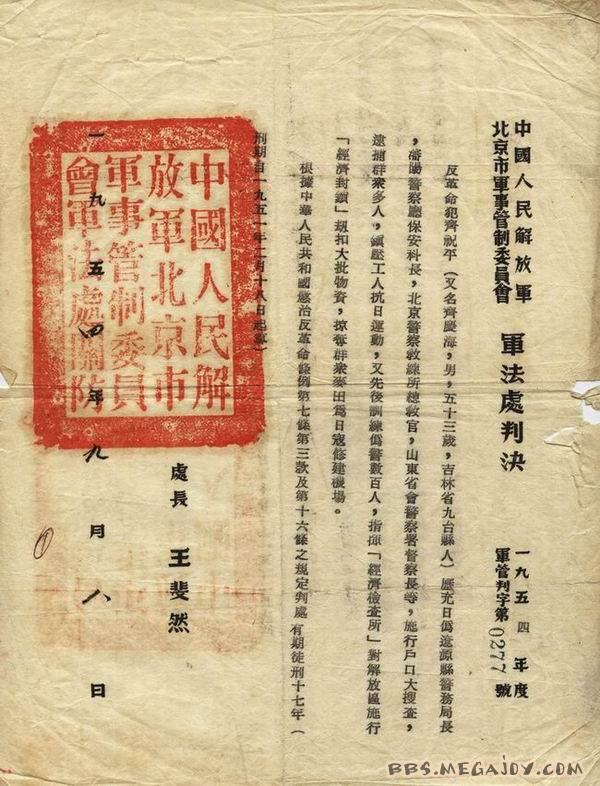 中國人民解放軍
北京市軍事管制委員會
軍法處判決
一九五四年度
軍管判字第0277號
反革命犯齊祝平（又名齊慶海，男，五十三歲，吉林省九台縣人）歷充日僞遼源縣警務局長
，瀋陽警察廳保安科長，北京警察教練所總教官，山東省會警察署督察長等，施行戶口大搜查，
逮捕群衆多人，鎭壓工人抗日運動，又先後訓練僞警數百人，指揮「經濟檢查所」對解放區施行
「經濟封鎖」規扣大批物資，掠奪群衆麥田爲日寇修建機場。
根據中華人民共和國懲治反革命條例第七條第三款及第十六條之規定判處有期徒刑十七年（
刑期自一九五一年 月十八日起算）
處長 王斐然
一九五四年九月八日
中國人民解
放軍北京市
軍事管制委員
會軍法處關防
BBS.MEGAJOY.COM